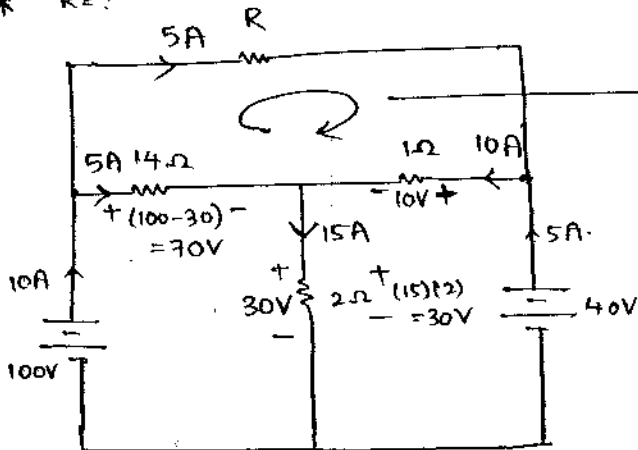 R=?
R
5A
5A 14Ω
1Ω
10A
+ (100-30) -
= 70V
- 10V +
15A
5A.
10A
+
30V
-
2Ω
+ (15)(2)
- = 30V
-
40V
-
100V